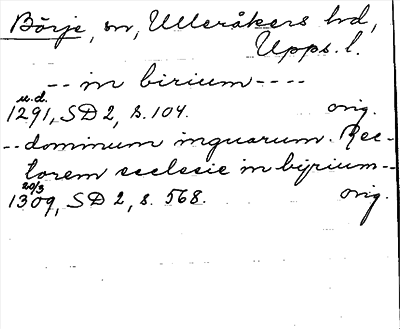 Börje, sn, Ulleråkers hd,
Upps. l.
-- in birium ----
u.d.
1291, SD 2, s. 104. orig.
-- dominum inguarum. Rec-
torem ecclesie in byrium --
20/3
1309, SD 2, s. 568. orig.